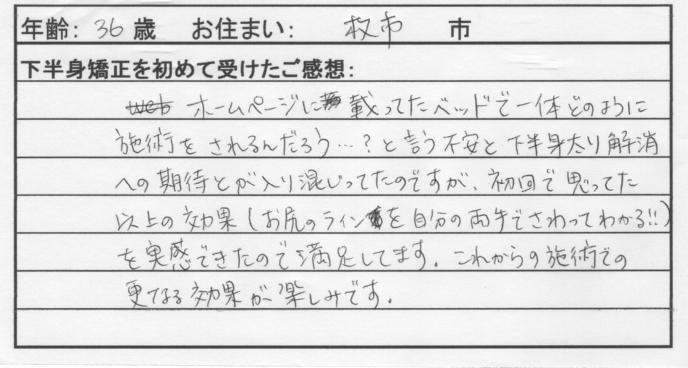 年齢: 36 歳 お住まい: 枚市 市
下半身矯正を初めて受けたご感想:
ホームページに載ってたベッドで一体どのように
施術をされるんだろう…?と言う不安と下半身太り解消
への期待とが入り混じってたのですが、初回で思ってた
以上の効果(お尻のラインを自分の両手でさわってわかる!!)
を実感できたので満足してます。これからの施術での
更なる効果が楽しみです。